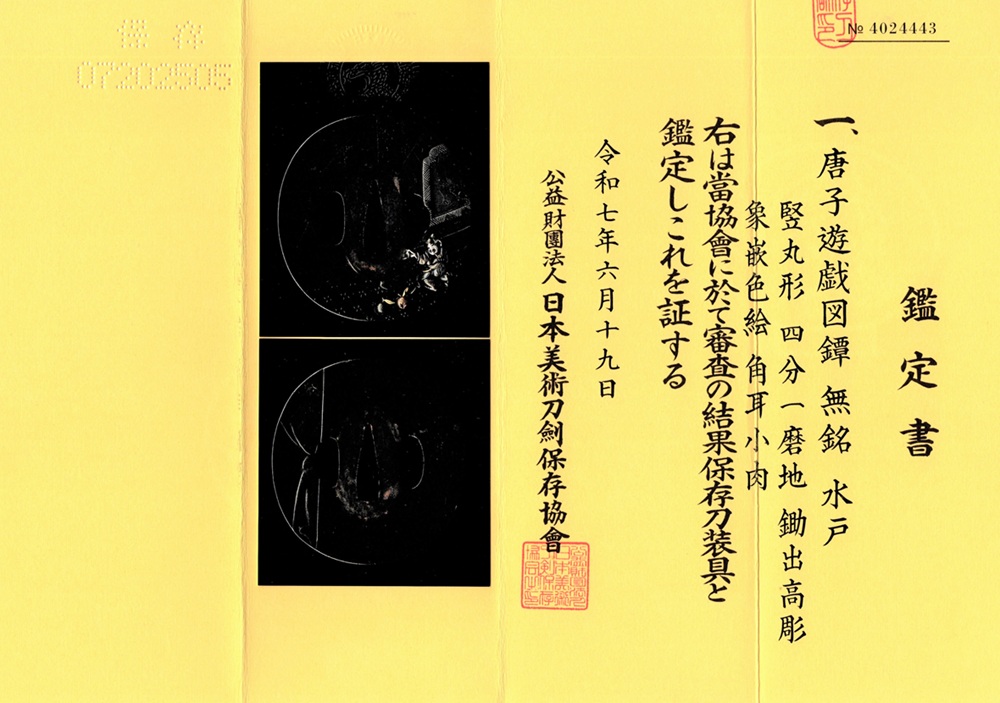 № 4024443
鑑定書
一、唐子遊戯図鐔 無銘 水戸
竪丸形 四分一磨地 鋤出高彫
象嵌色絵 角耳小肉
右は當協會に於て審査の結果保存刀装具と
鑑定しこれを証する
令和七年六月十九日
公益財團法人 日本美術刀劍保存協會
保存
07202505